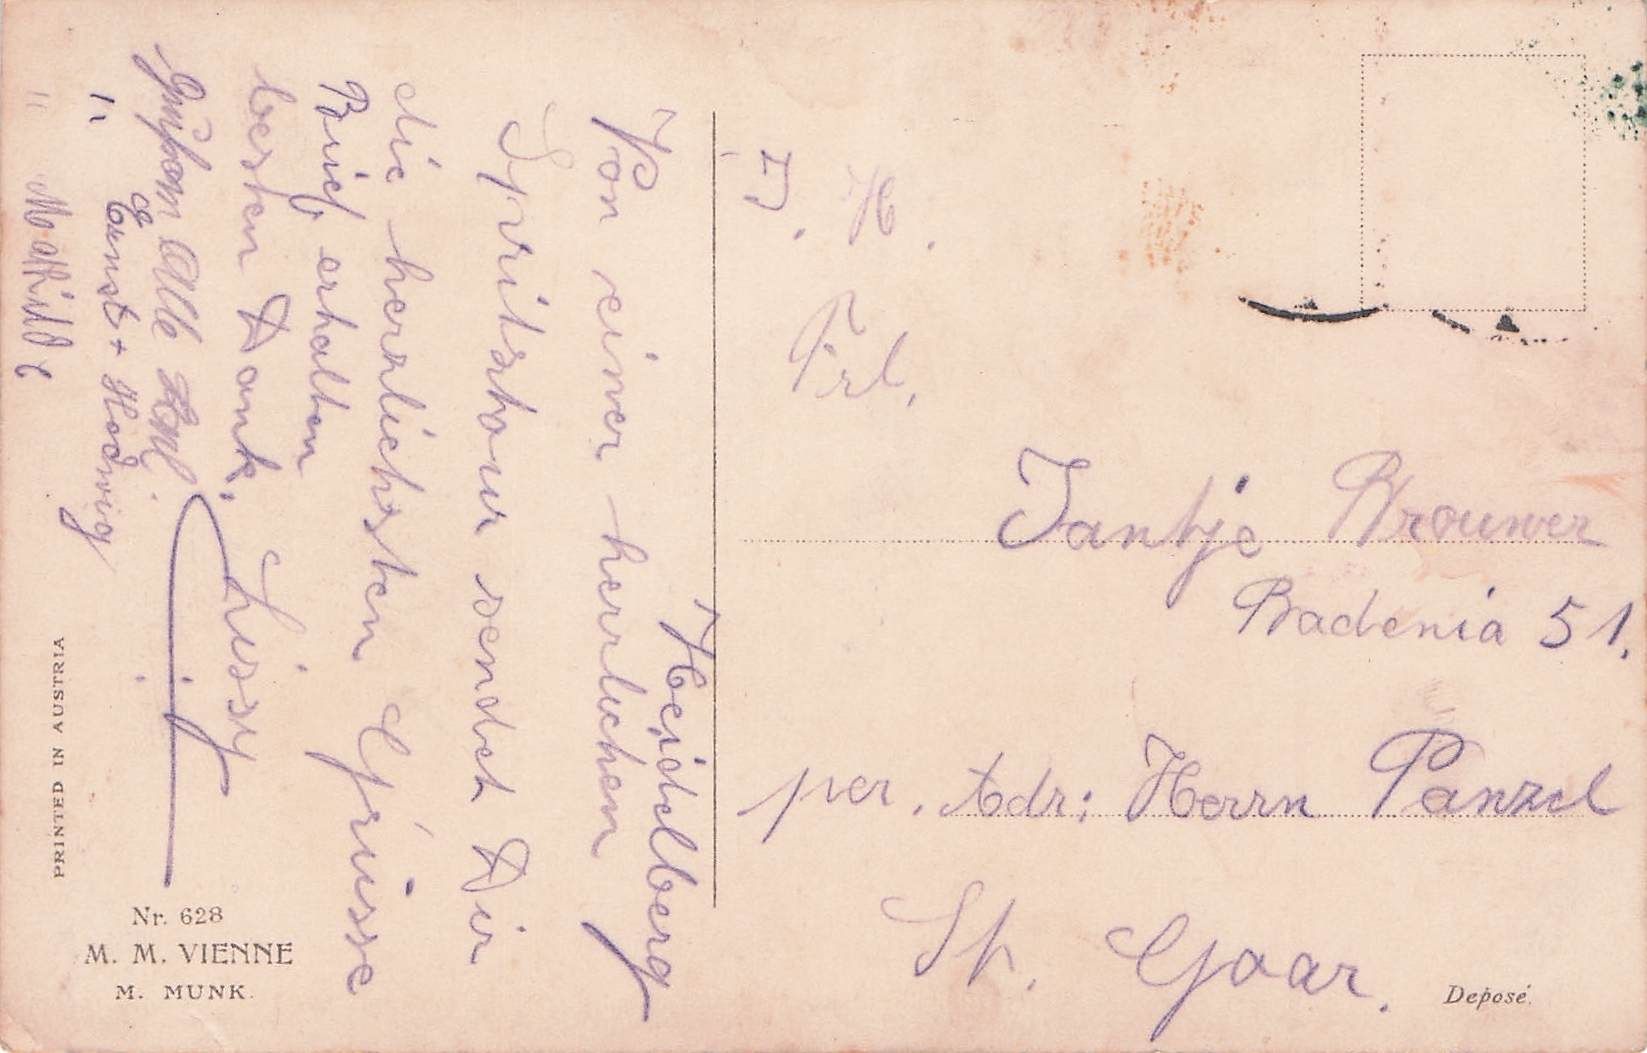 Heidelberg
Von einer herrlichen
Spritztour sendet Dir
die herzlichsten Grüsse
Brief erhalten
besten Dank.
Lissy
Alle
Ernst + Hedwig
" Mathilde
J. H.
Frl.
Jantje Brouwer
Badenia 51.
per. Adr: Herrn Panzel
St. Goar.
PRINTED IN AUSTRIA
Nr. 628
M. M. VIENNE
M. MUNK.
Deposé.